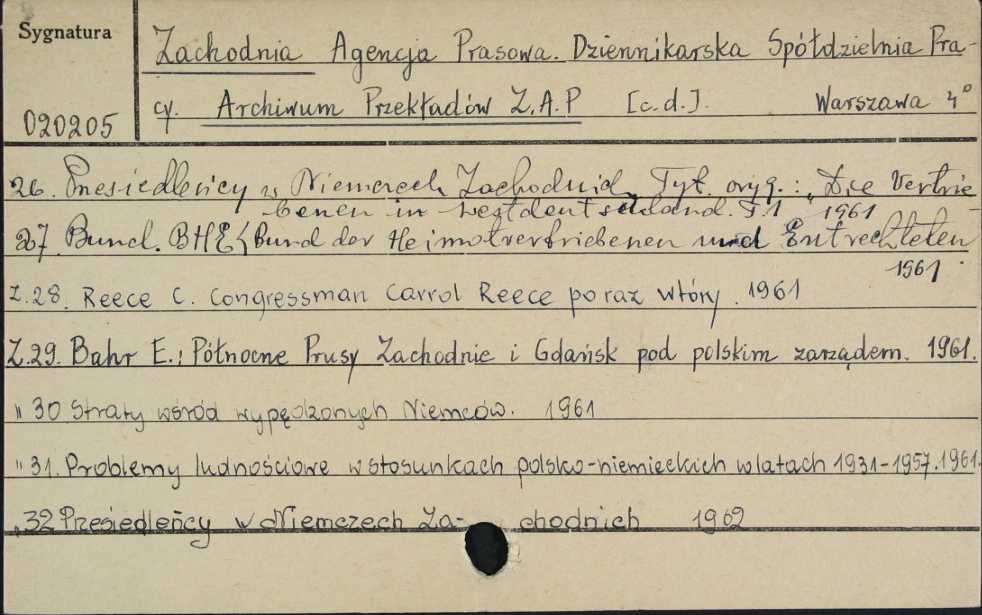 Sygnatura
Zachodnia Agencja Prasowa. Dziennikarska Spółdzielnia Pra-
cy. Archiwum Przekładów Z.A.P [c.d.]. Warszawa 4°
020205
26. Przesiedleńcy w Niemczech Zachodnich. Tyt. oryg.: „Die Vertrie-
benen in Westdeutschland. T.1 1961
27. Bund. BHE (Bund der Heimatvertriebenen und Entrechteten
1961.
Z.28. Reece C. Congressman Carrol Reece po raz wtóry. 1961
Z.29. Bahr E.: Północne Prusy Zachodnie i Gdańsk pod polskim zarządem. 1961.
" 30 Straty wśród wypędzonych Niemców. 1961
" 31. Problemy ludnościowe w stosunkach polsko-niemieckich w latach 1931-1957. 1961.
" 32 Przesiedleńcy w Niemczech Za- chodnich 1962